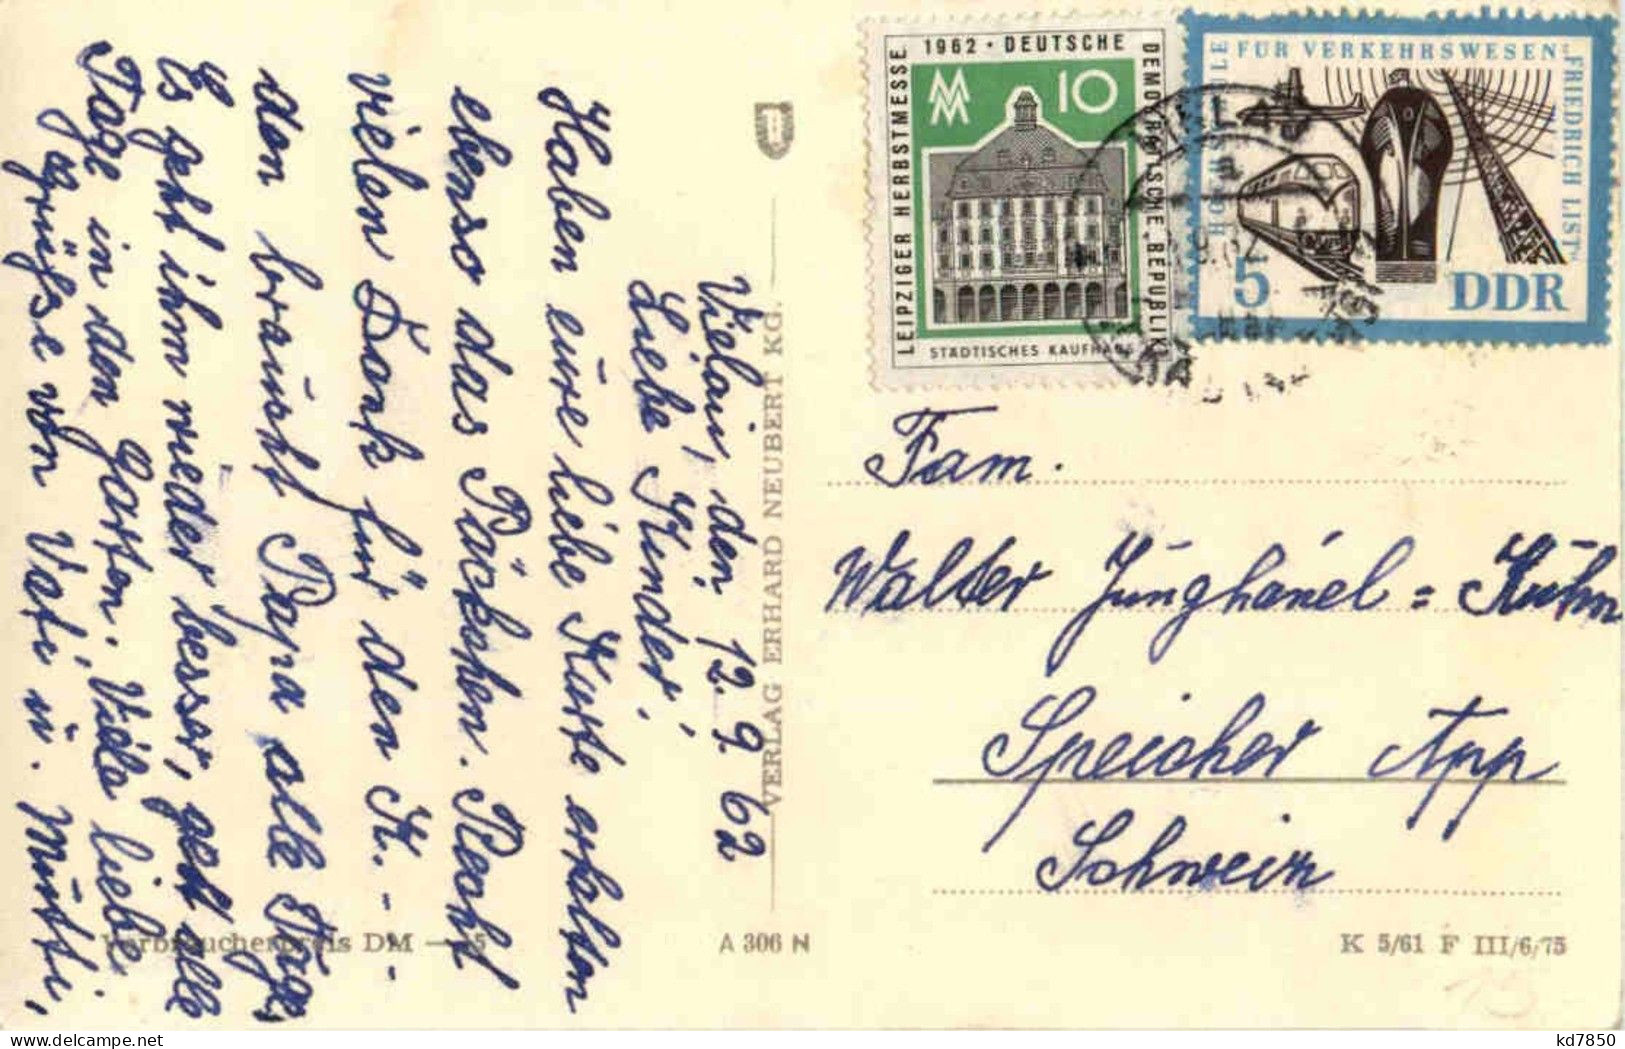 Vielau, den 12. 9. 62
Liebe Kinder!
Haben eure liebe Karte erhalten
ebenso das Päckchen. Recht
vielen Dank für den K. - -
den braucht Papa alle Tage,
Es geht ihm wieder besser, geht alle
Tage in den Garten. Viele liebe
Grüße von Vati u. Mutti,
VERLAG ERHARD NEUBERT KG.
Verbraucherpreis DM
A 306 N
K 5/61 F III/6/75
LEIPZIGER HERBSTMESSE 1962 · DEUTSCHE DEMOKRATISCHE REPUBLIK
MM 10
STÄDTISCHES KAUFHAUS
HOCHSCHULE FÜR VERKEHRSWESEN „FRIEDRICH LIST"
5 DDR
Fam.
Walter Junghänel = Kuhn
Speicher App
Schweiz
kd7850